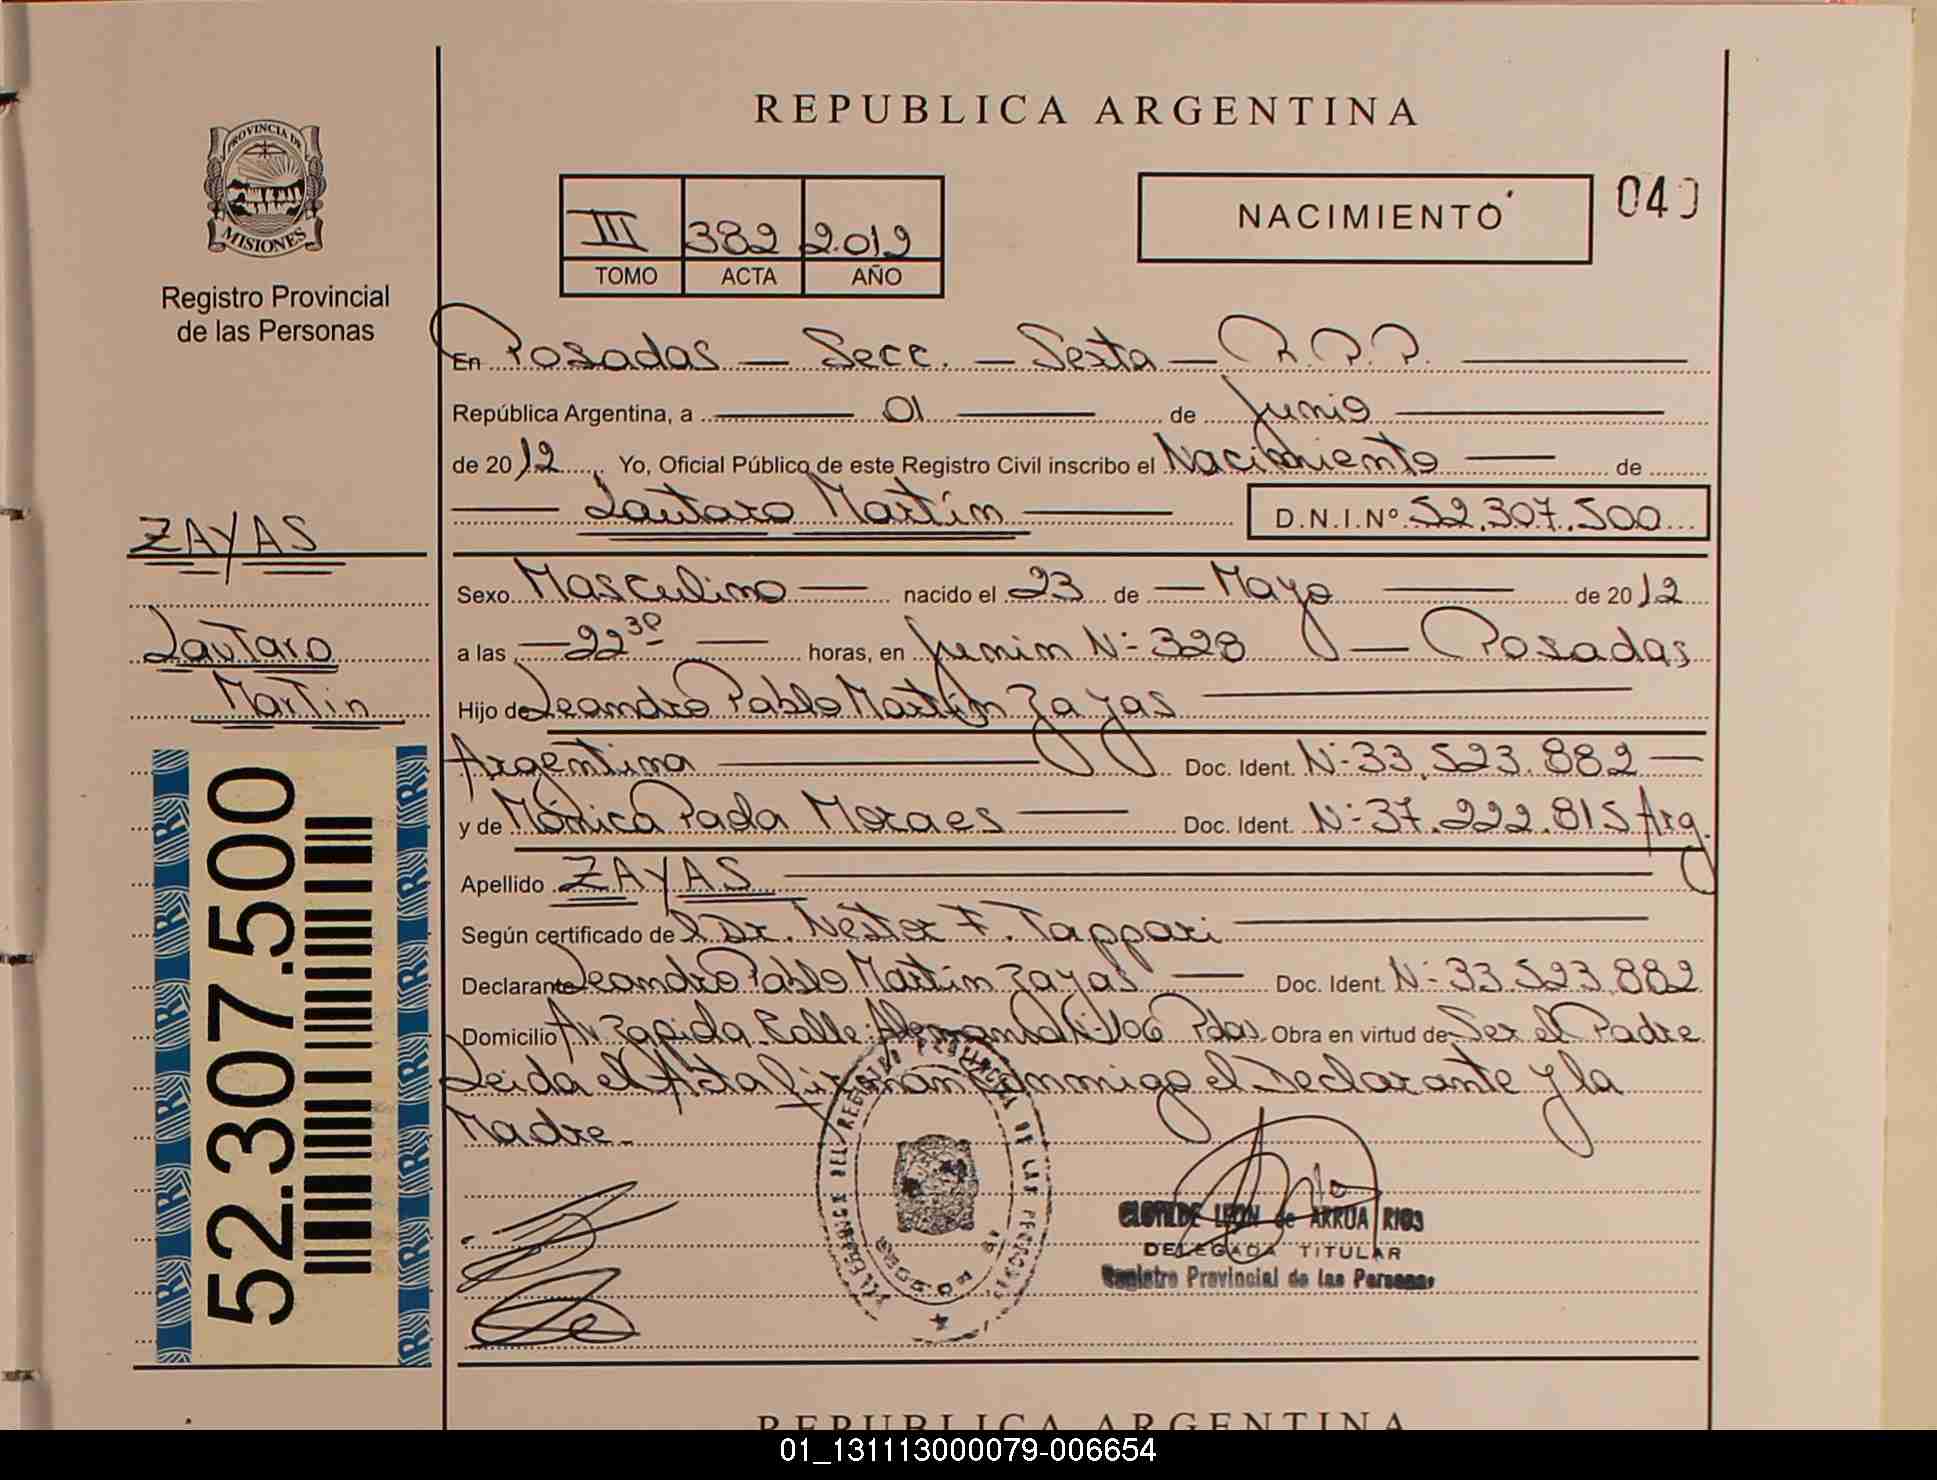 REPUBLICA ARGENTINA
PROVINCIA DE
MISIONES
Registro Provincial
de las Personas
III 382 2.012
TOMO ACTA AÑO
NACIMIENTO
040
En Posadas — Secc. — Sexta — R.P.P.
República Argentina, a 01 de Junio
de 2012. Yo, Oficial Público de este Registro Civil inscribo el Nacimiento — de
— Lautaro Martín — D.N.I.Nº 52.307.500
ZAYAS
Lautaro
Martin
52.307.500
Sexo Masculino — nacido el 23 de — Mayo — de 2012
a las — 22³⁰ — horas, en Junin N- 328 — Posadas
Hijo de Leandro Pablo Martín Zayas
Argentina — Doc. Ident. N- 33.523.882 —
y de Mónica Paola Moraes — Doc. Ident. N- 37.222.815 Arg.
Apellido ZAYAS
Según certificado del Dr. Nestor F. Tappari
Declarante Leandro Pablo Martin Zayas — Doc. Ident. N- 33.523.882
Domicilio Av Zapiola Calle Alemania N-106 Pdas. Obra en virtud de Ser el Padre
Leida el Acta firman conmigo el Declarante y la
Madre.
CLOTILDE LEON de ARRUA RIOS
DELEGADA TITULAR
Registro Provincial de las Personas
REPUBLICA ARGENTINA
01_131113000079-006654